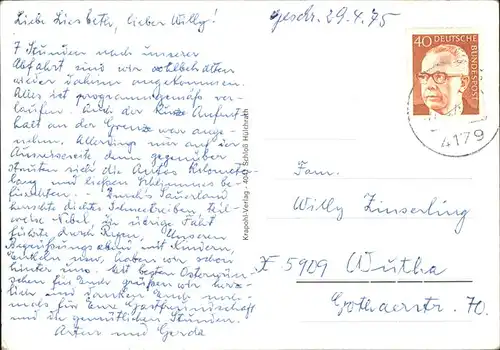 Liebe Liesbeth, lieber Willy!
7 Stunden nach unserer
Abfahrt sind wir wohlbehalten
wieder daheim angekommen.
Alles ist programmgemäß ver-
laufen. Auch der kurze Aufent-
halt an der Grenze war ange-
nehm. Allerdings nur auf der
Ausreiseseite denn gegenüber
stauten sich die Autos kilometer-
lang und ließen Schlimmes be-
fürchten. - Durchs Sauerland
herrschte dichtes Schneetreiben teil-
weise Nebel die übrige Fahrt
führte durch Regen. Unseren
Begrüßungsabend mit Kindern,
Enkeln usw. haben wir schon
hinter uns. Mit besten Ostergrü-
ßen für Euch grüßen wir herz-
lich und danken Euch noch-
mals für Eure Gastfreundschaft
und die gemütlichen Stunden.
Artur und Gerda
Krapohl-Verlag - 4041 Schloß Hülchrath
geschr. 29.4.75
40 DEUTSCHE
BUNDESPOST
4179
Fam.
Willy Zinserling
X 5909 Wutha
Gothaerstr. 70.